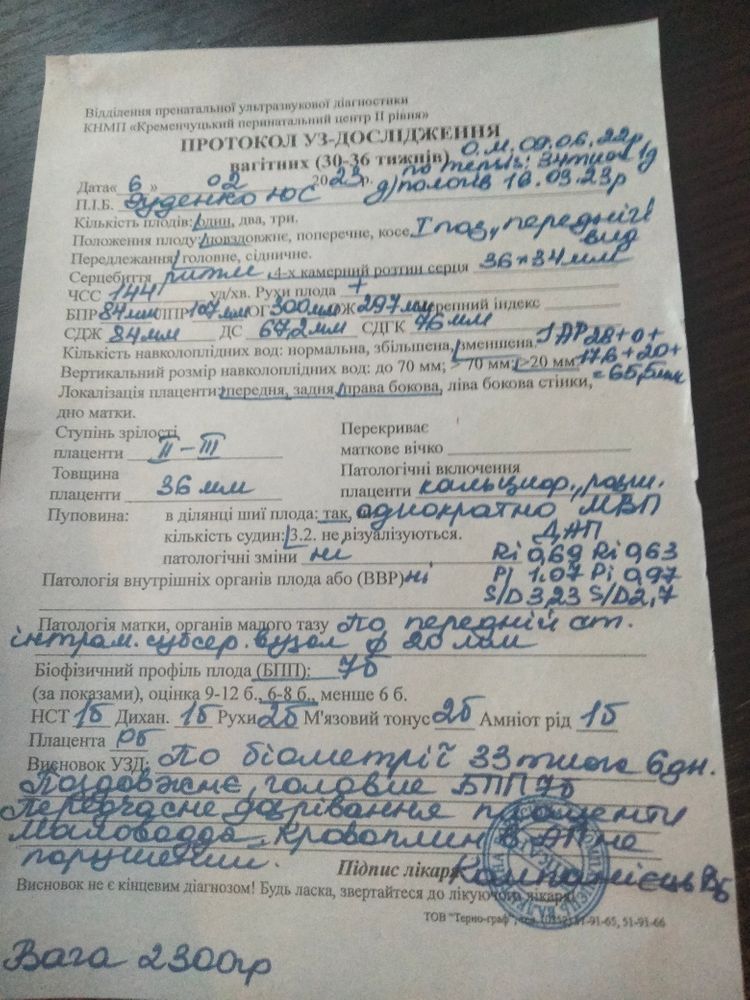 Відділення пренатальної ультразвукової діагностики
КНМП «Кременчуцький перинатальний центр ІІ рівня»
ПРОТОКОЛ УЗ-ДОСЛІДЖЕННЯ
вагітних (30-36 тижнів) О.М. 09.06.22р
Дата« 6 » 02 2023р. по тепіь: 34тиж 1д
П.І.Б. Руденко Ю С д/пологів 16.03.23р
Кількість плодів: один, два, три.
Положення плоду: повздовжнє, поперечне, косе І поз., передній
Передлежання: головне, сідничне. вид
Серцебиття ритм. ,4-х камерний розтин серця 36*34мм
ЧСС 144 уд/хв. Рухи плода +
БПР 84мм ЛПР 107мм ОГ 300мм ДСЖ 297мм Черепний індекс
СДЖ 84мм ДС 67,2мм СДГК 76 мм
Кількість навколоплідних вод: нормальна, збільшена, зменшена. ІАР 28+0+
Вертикальний розмір навколоплідних вод: до 70 мм; > 70 мм; >20 мм 17,6+20+
Локалізація плаценти: передня, задня, права бокова, ліва бокова стінки, =65,6мм
дно матки.
Ступінь зрілості Перекриває
плаценти ІІ – ІІІ маткове вічко
Товщина Патологічні включення
плаценти 36 мм плаценти кальциф., розш.
Пуповина: в ділянці шиї плода: так, ні однократно МВП
кількість судин: 3.2. не візуалізуються. ДАП
патологічні зміни ні Ri 0,69 Ri 0,63
Патологія внутрішніх органів плода або (ВВР) ні Pi 1.07 Pi 0,97
S/D 3,23 S/D 2,7
Патологія матки, органів малого тазу По передній ст.
інтрам. субсер. вузол ф 20 мм
Біофізичний профіль плода (БПП): 7б
(за показами), оцінка 9-12 б., 6-8 б., менше 6 б.
НСТ 1б Дихан. 1б Рухи 2б М'язовий тонус 2б Амніот рід 1б
Плацента 0б
Висновок УЗД: По біометрії 33 тижн 6дн.
Поздовжнє, головне БПП 7б
Передчасне дозрівання плаценти
Маловоддя. Кровоплин в АП не
порушений. Підпис лікаря Компанієць
Висновок не є кінцевим діагнозом! Будь ласка, звертайтеся до лікуючого лікаря!
ТОВ "Терно-граф", 51-91-65, 51-91-66
Вага 2300гр